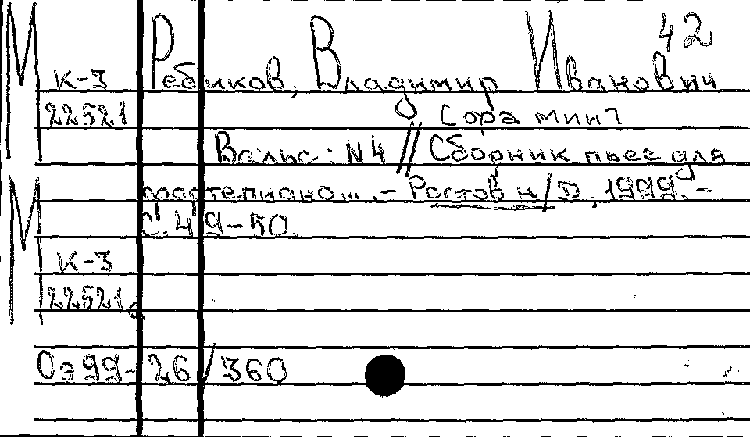 42
М Ребиков, Владимир Иванович
К-3
22521
Вальс: N4 // Сборник пьес для
фортепиано... - Ростов н/Д, 1999. -
С. 49-50
М
К-3
22521
Оэ99-26/360